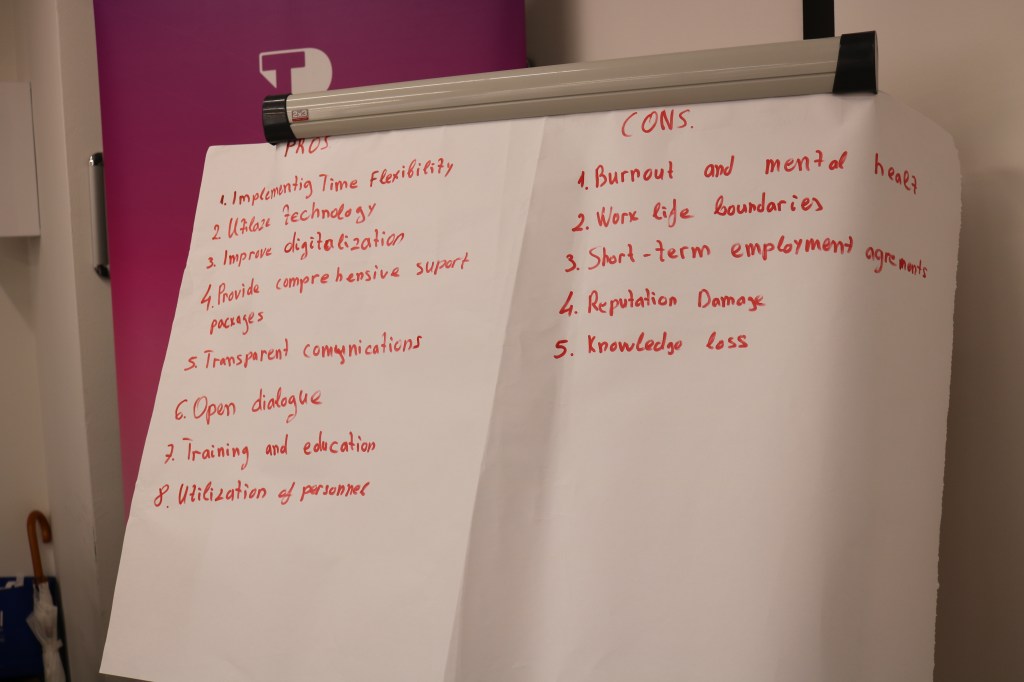 PROS
1. Implementig Time Flexibility
2 Utilaze technology
3. Improve digitalization
4. Provide comprehensive suport
packages
5. Transparent communications
6. Open dialogue
7. Training and education
8. Utilization of personnel
CONS.
1. Burnout and mental healt
2. Work life boundaries
3. Short-term employment agrements
4. Reputation Damage
5. Knowledge loss